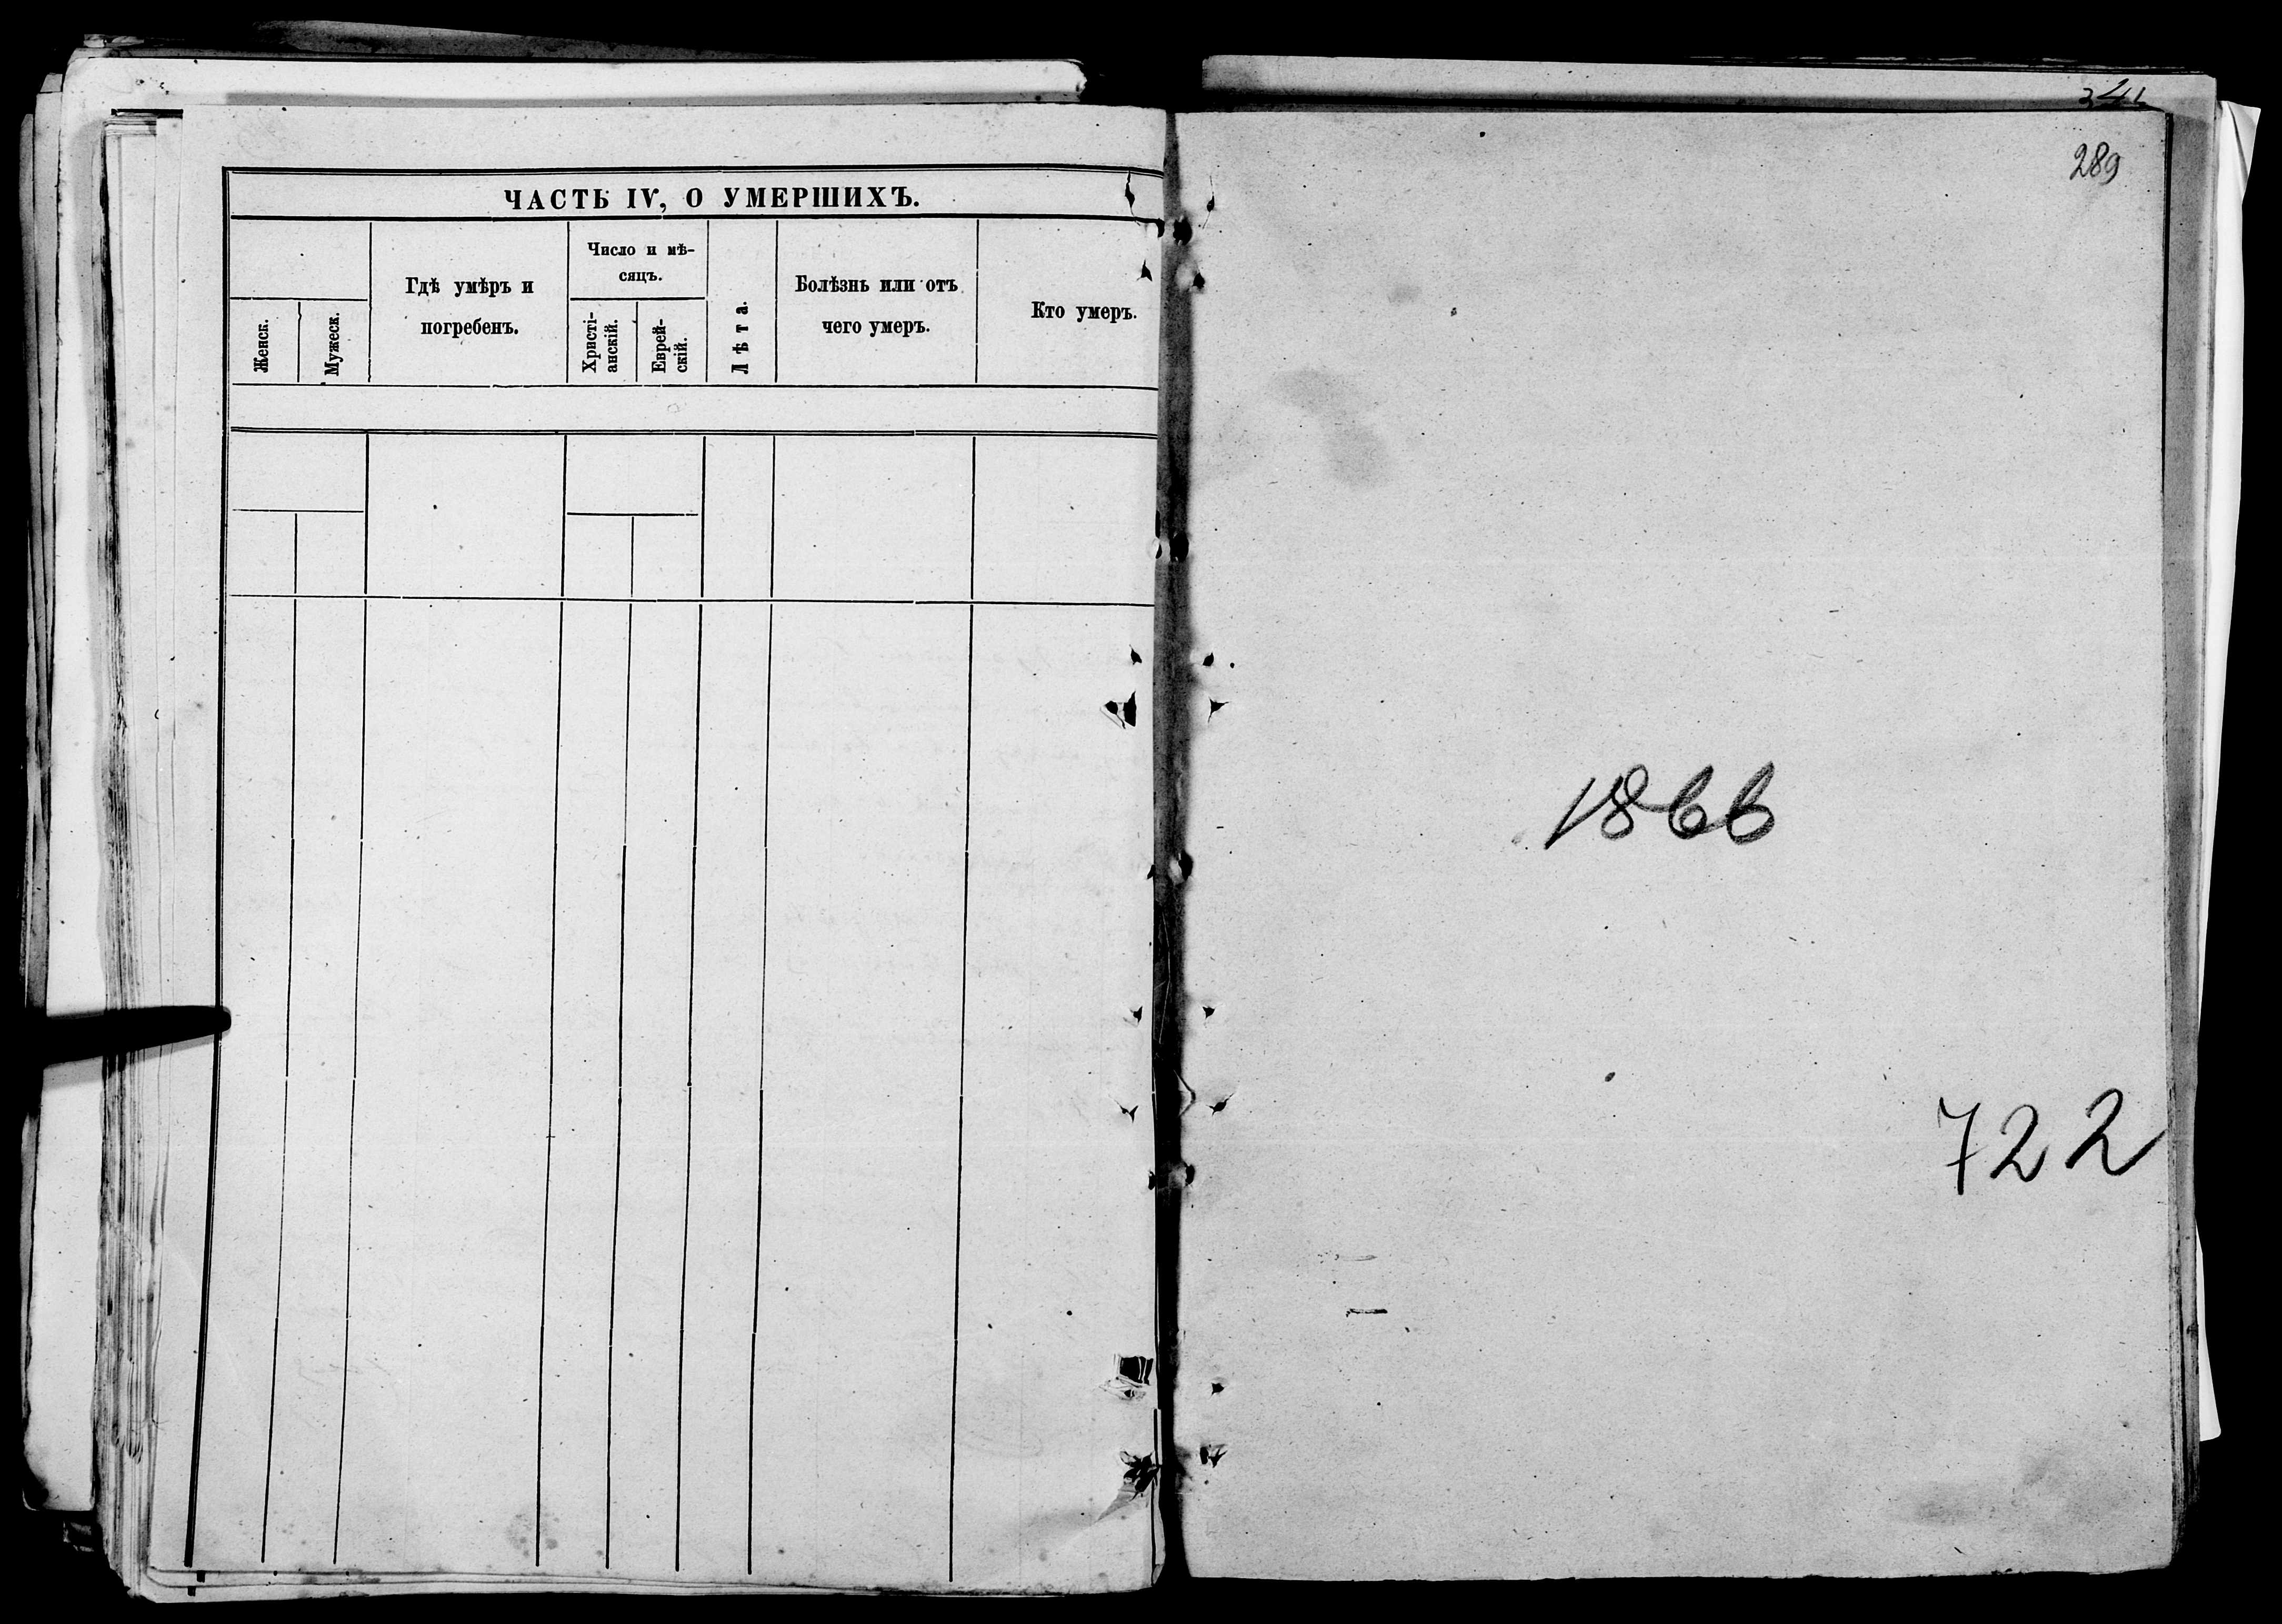 ЧАСТЬ IV, О УМЕРШИХЪ.
Женск.
Мужеск.
Гдѣ умѣръ и
погребенъ.
Число и мѣ-
сяцъ.
Христі-
анскій.
Еврей-
скій.
Лѣта.
Болѣзнь или отъ
чего умеръ.
Кто умеръ.
289
1866
722